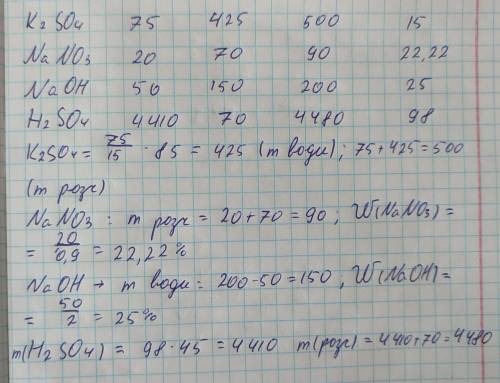 K2SO4 75 425 500 15
NaNO3 20 70 90 22,22
NaOH 50 150 200 25
H2SO4 4410 70 4480 98
K2SO4 = 75/15 · 85 = 425 (m води); 75+425=500
(m розч)
NaNO3 : m розч = 20+70 = 90 ; W(NaNO3) =
= 20/0,9 = 22,22%
NaOH → m води = 200-50=150 , W(NaOH)=
= 50/2 = 25%
m(H2SO4) = 98·45 = 4410 m(розч) = 4410+70=4480